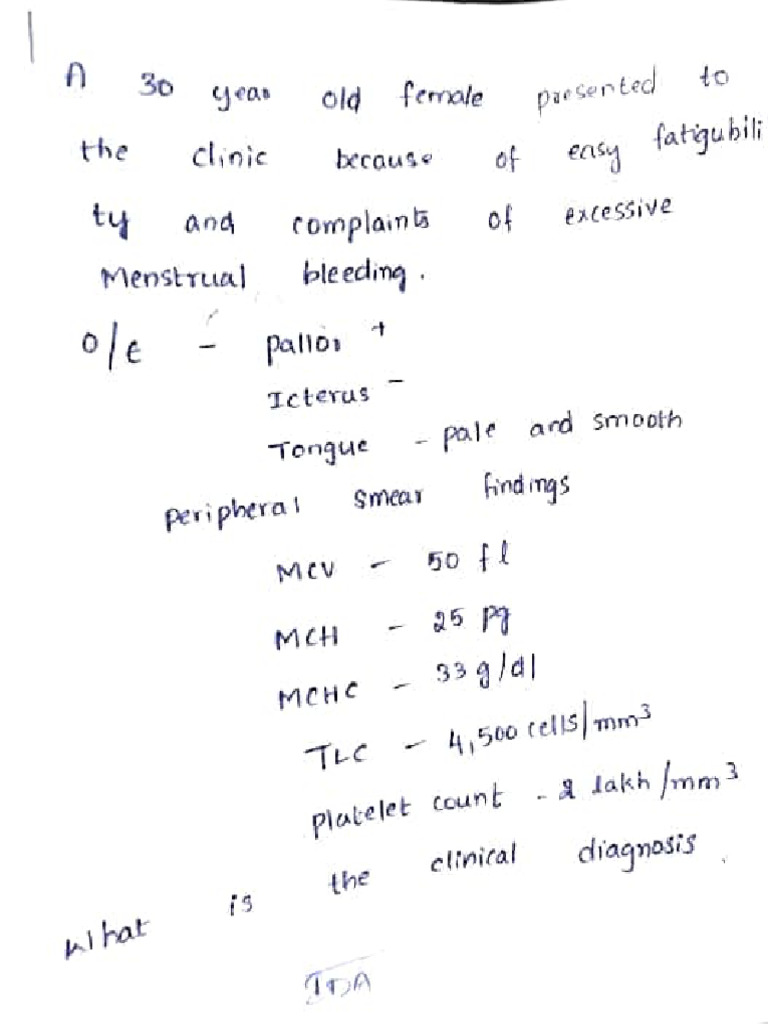 A 30 year old female presented to
the clinic because of easy fatigubili
ty and complaints of excessive
Menstrual bleeding.
o/e - pallor +
Icterus -
Tongue - pale and smooth
peripheral smear findings
MCV - 50 fl
MCH - 25 pg
MCHC - 33 g/dl
TLC - 4,500 cells/mm³
Platelet count - 2 lakh/mm³
What is the clinical diagnosis.
IDA